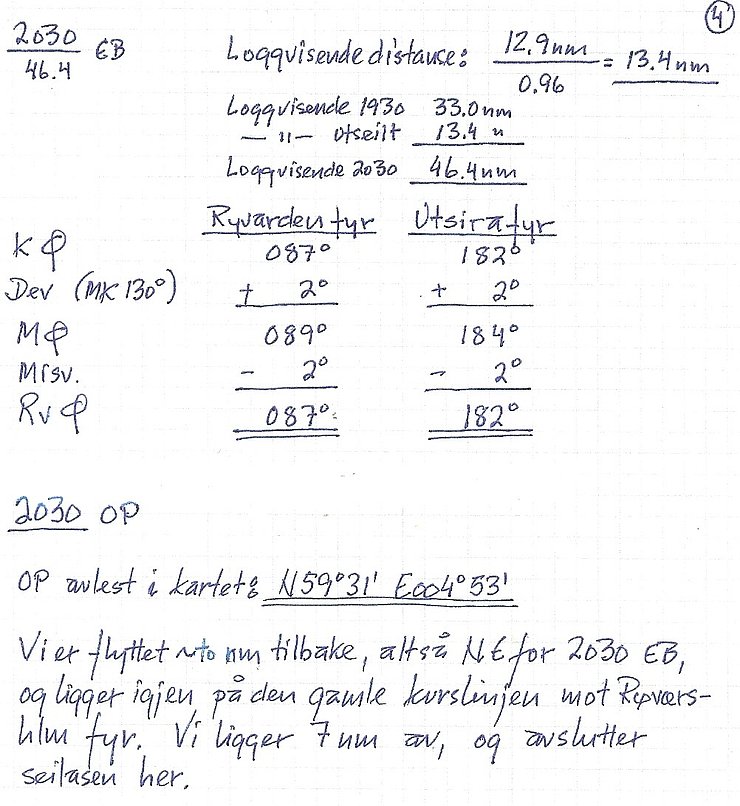 4
2030 / 46.4 EB Loggvisende distanse: 12.9nm / 0.96 = 13.4nm
Loggvisende 1930 33.0nm
— " — Utseilt 13.4 "
Loggvisende 2030 46.4nm
Ryvarden fyr Utsira fyr
K ϕ 087° 182°
Dev (MK 130°) + 2° + 2°
M ϕ 089° 184°
Misv. - 2° - 2°
Rv ϕ 087° 182°
2030 OP
OP avlest i kartet: N59°31' E004°53'
Vi er flyttet ~to nm tilbake, altså NE for 2030 EB,
og ligger igjen på den gamle kurslinjen mot Røværs-
hlm fyr. Vi ligger 7 nm av, og avslutter
seilasen her.